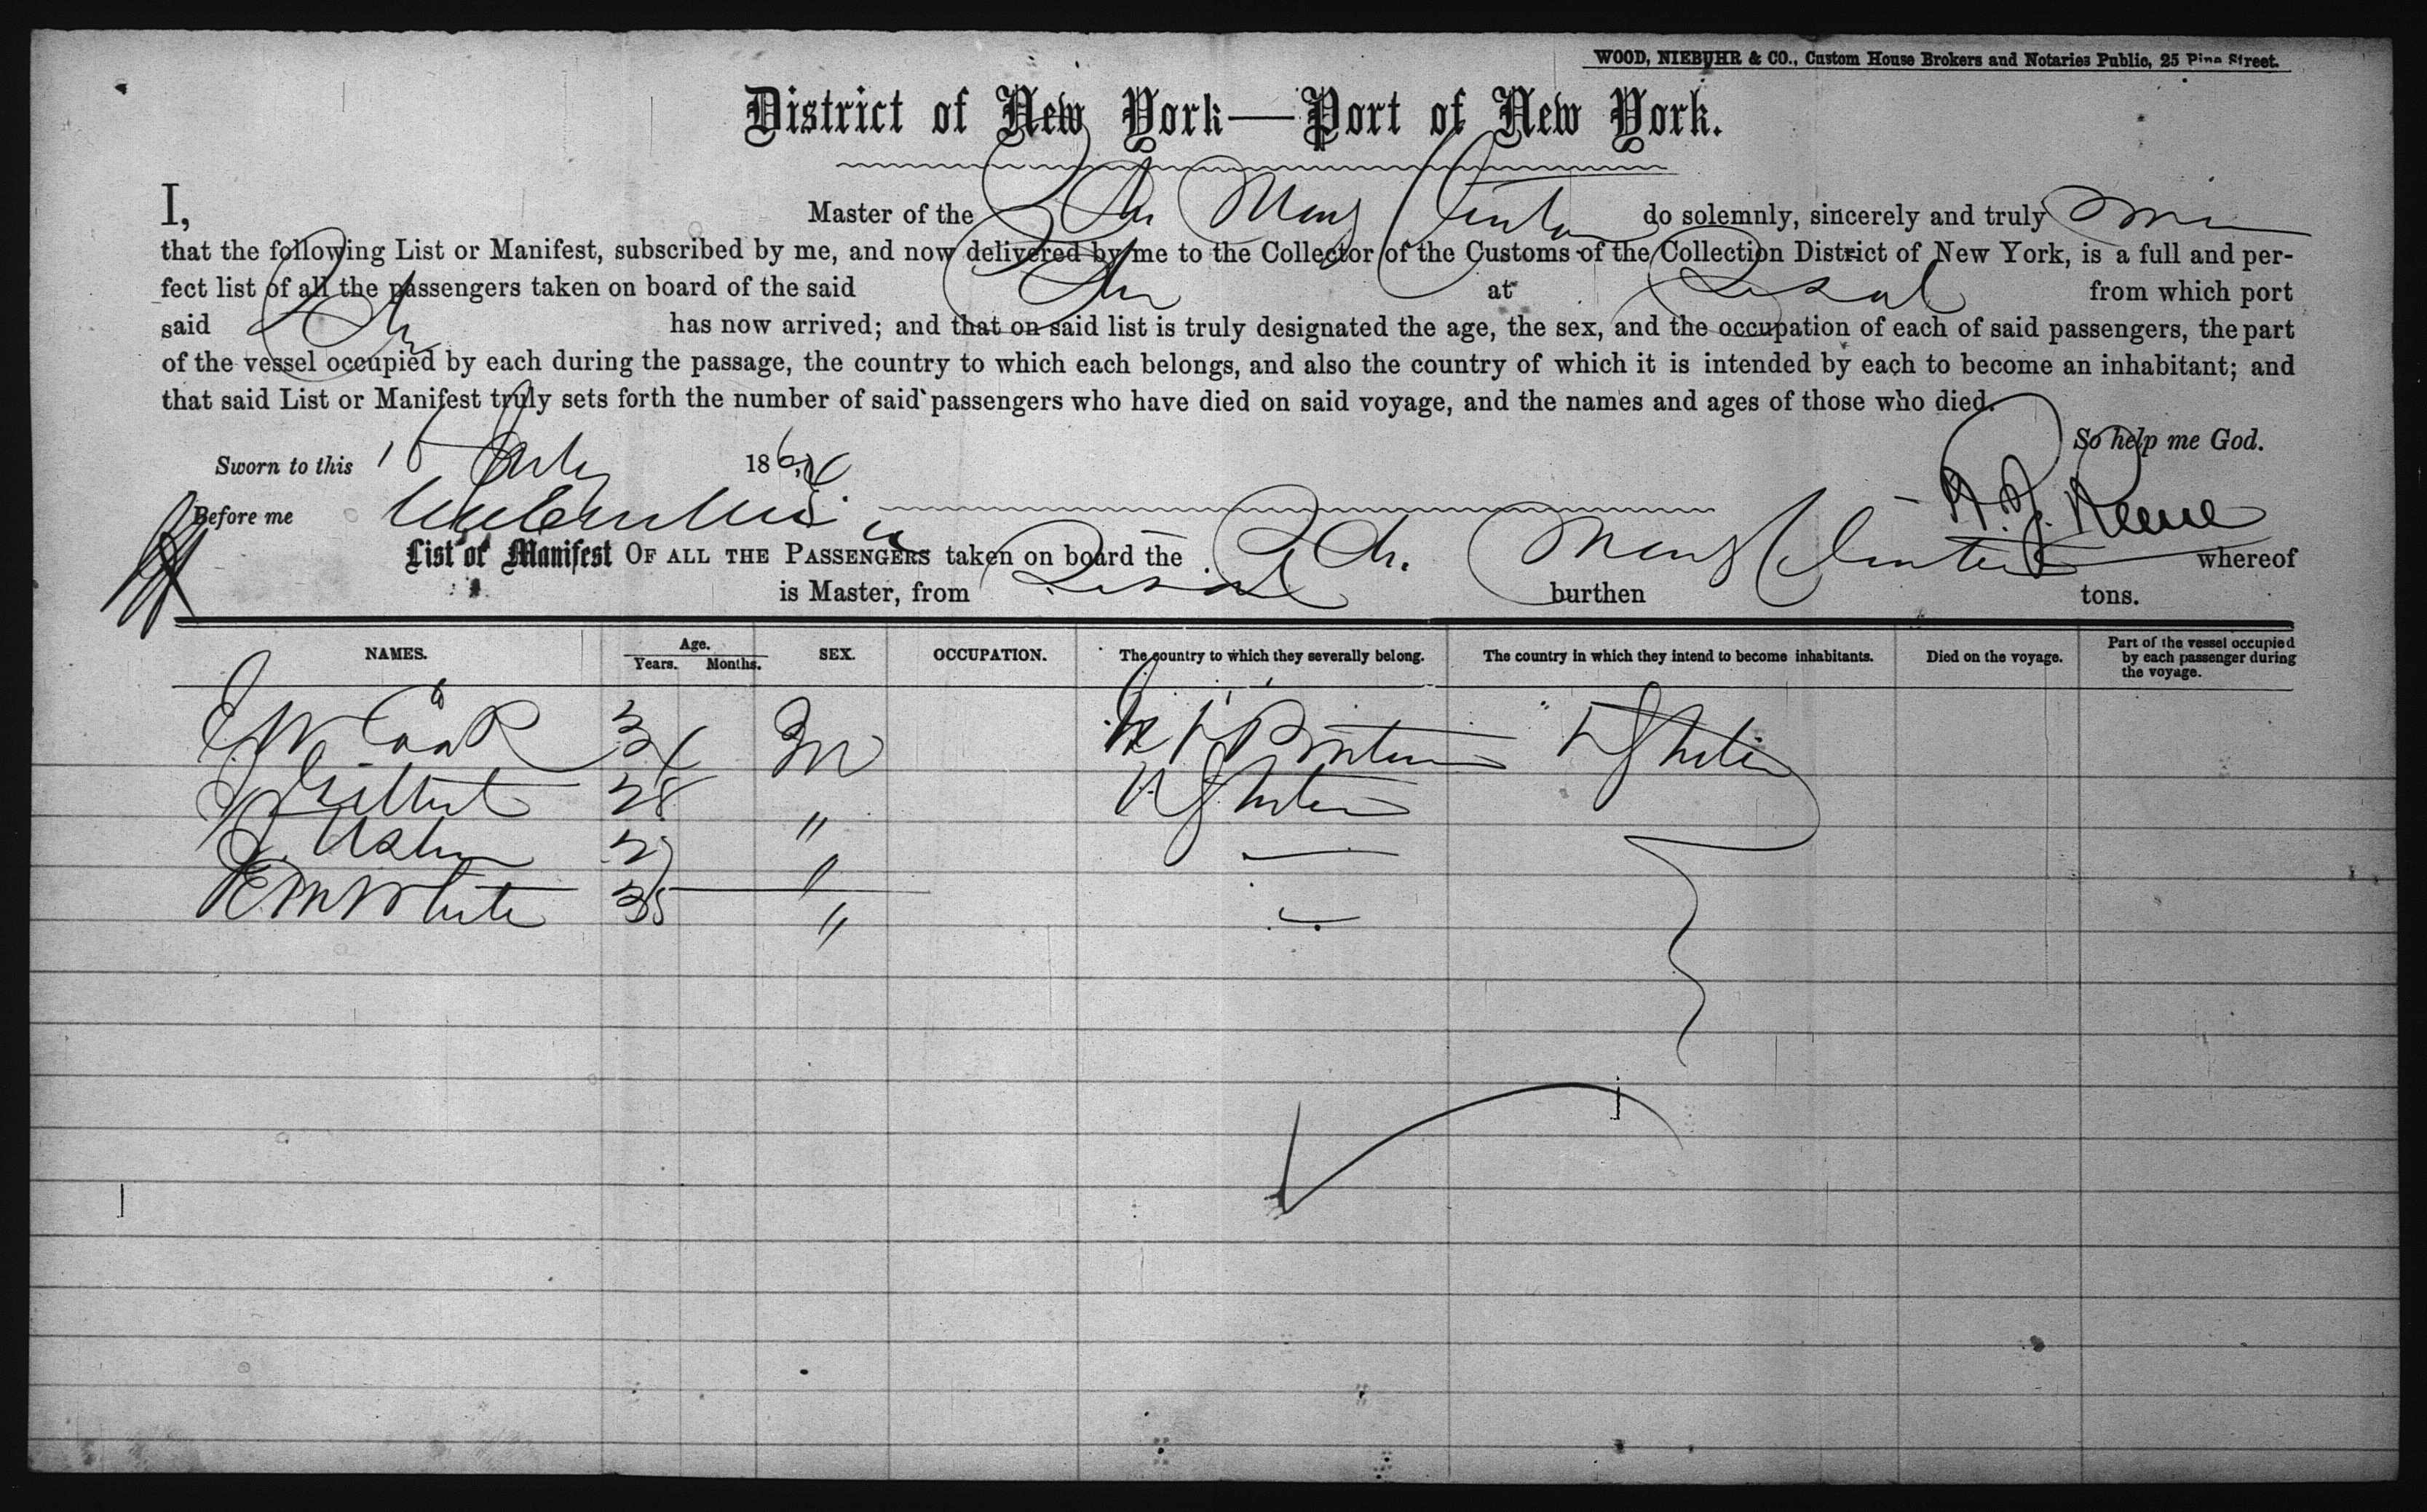 WOOD, NIEBUHR & CO., Custom House Brokers and Notaries Public, 25 Pine Street.
District of New York—Port of New York.
I, Master of the Schr Mary Clinton do solemnly, sincerely and truly
that the following List or Manifest, subscribed by me, and now delivered by me to the Collector of the Customs of the Collection District of New York, is a full and per-
fect list of all the passengers taken on board of the said Schr at from which port
said Schr has now arrived; and that on said list is truly designated the age, the sex, and the occupation of each of said passengers, the part
of the vessel occupied by each during the passage, the country to which each belongs, and also the country of which it is intended by each to become an inhabitant; and
that said List or Manifest truly sets forth the number of said passengers who have died on said voyage, and the names and ages of those who died.
So help me God.
Sworn to this 15 July 186
Before me
List or Manifest OF ALL THE PASSENGERS taken on board the Schr. Mary Clinton whereof
is Master, from burthen tons.
NAMES. Age. Years. Months. SEX. OCCUPATION. The country to which they severally belong. The country in which they intend to become inhabitants. Died on the voyage. Part of the vessel occupied by each passenger during the voyage.
J W Cook M Britain
J Gilbert 28 " U States
J. "
E M White 35 "